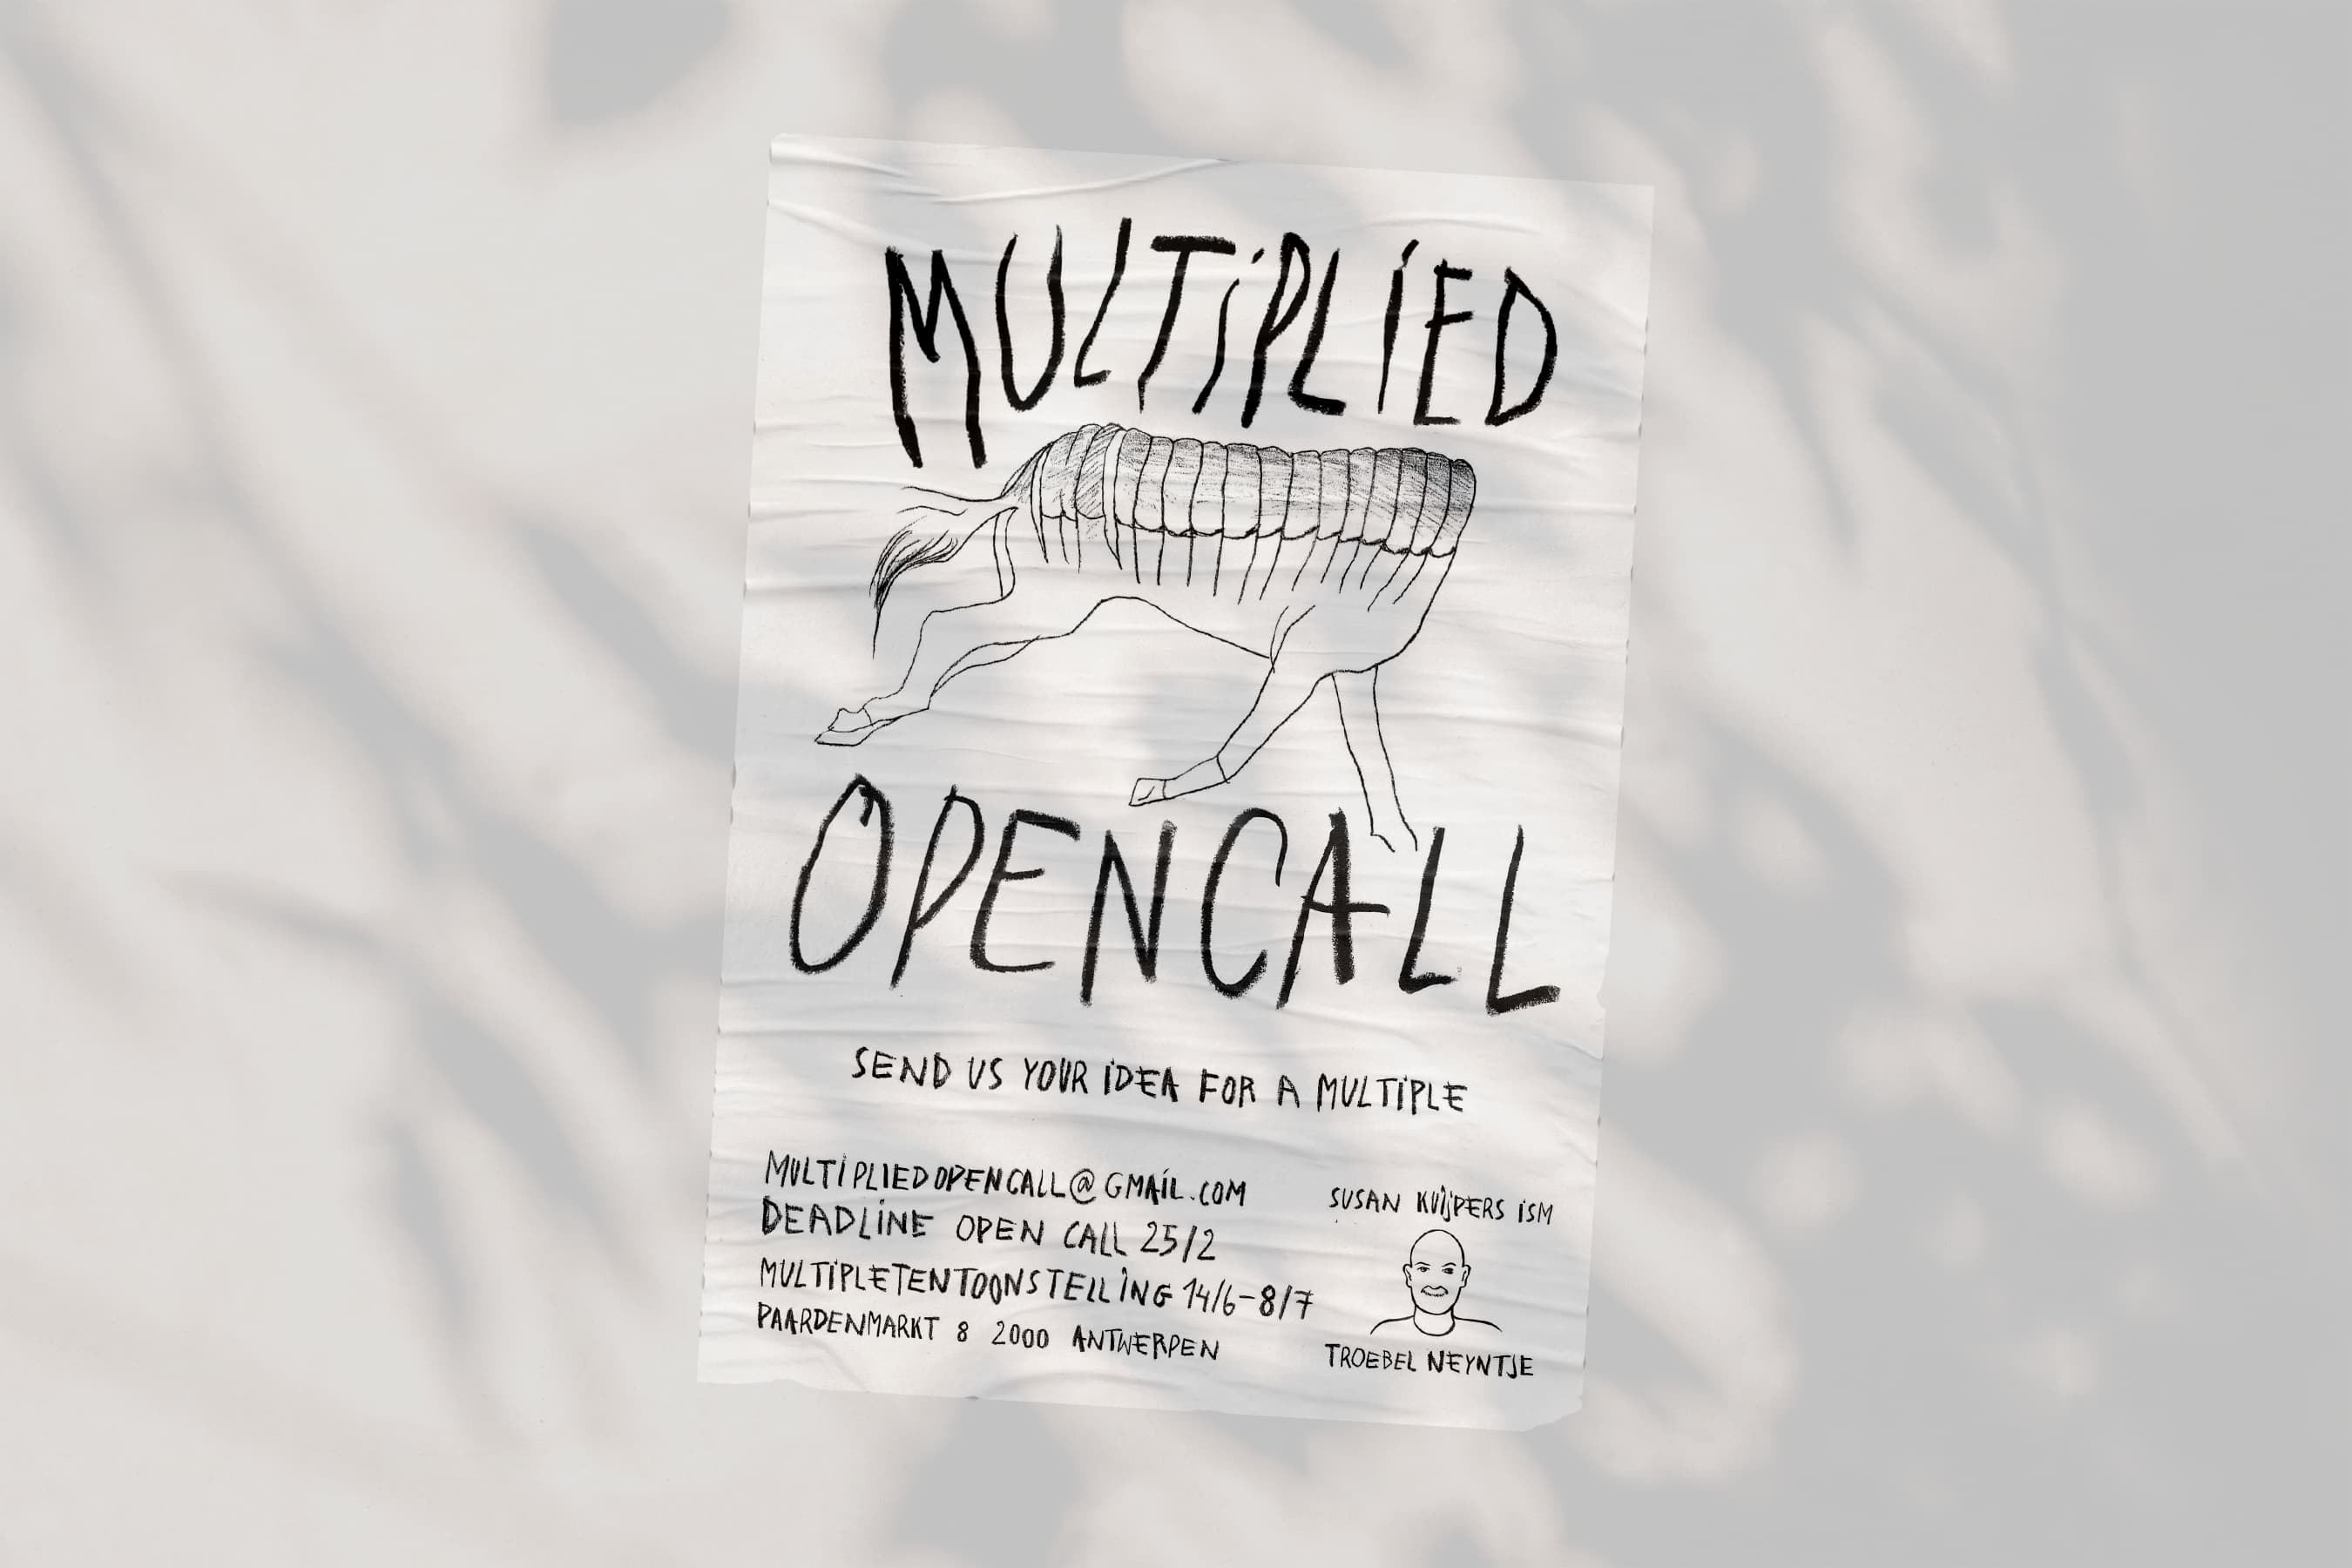 MULTIPLIED
OPENCALL
SEND US YOUR IDEA FOR A MULTIPLE
MULTIPLIEDOPENCALL@GMAIL.COM
DEADLINE OPEN CALL 25/2
MULTIPLETENTOONSTELLING 14/6-8/7
PAARDENMARKT 8 2000 ANTWERPEN
SUSAN KUIJPERS ISM
TROEBEL NEYNTJE